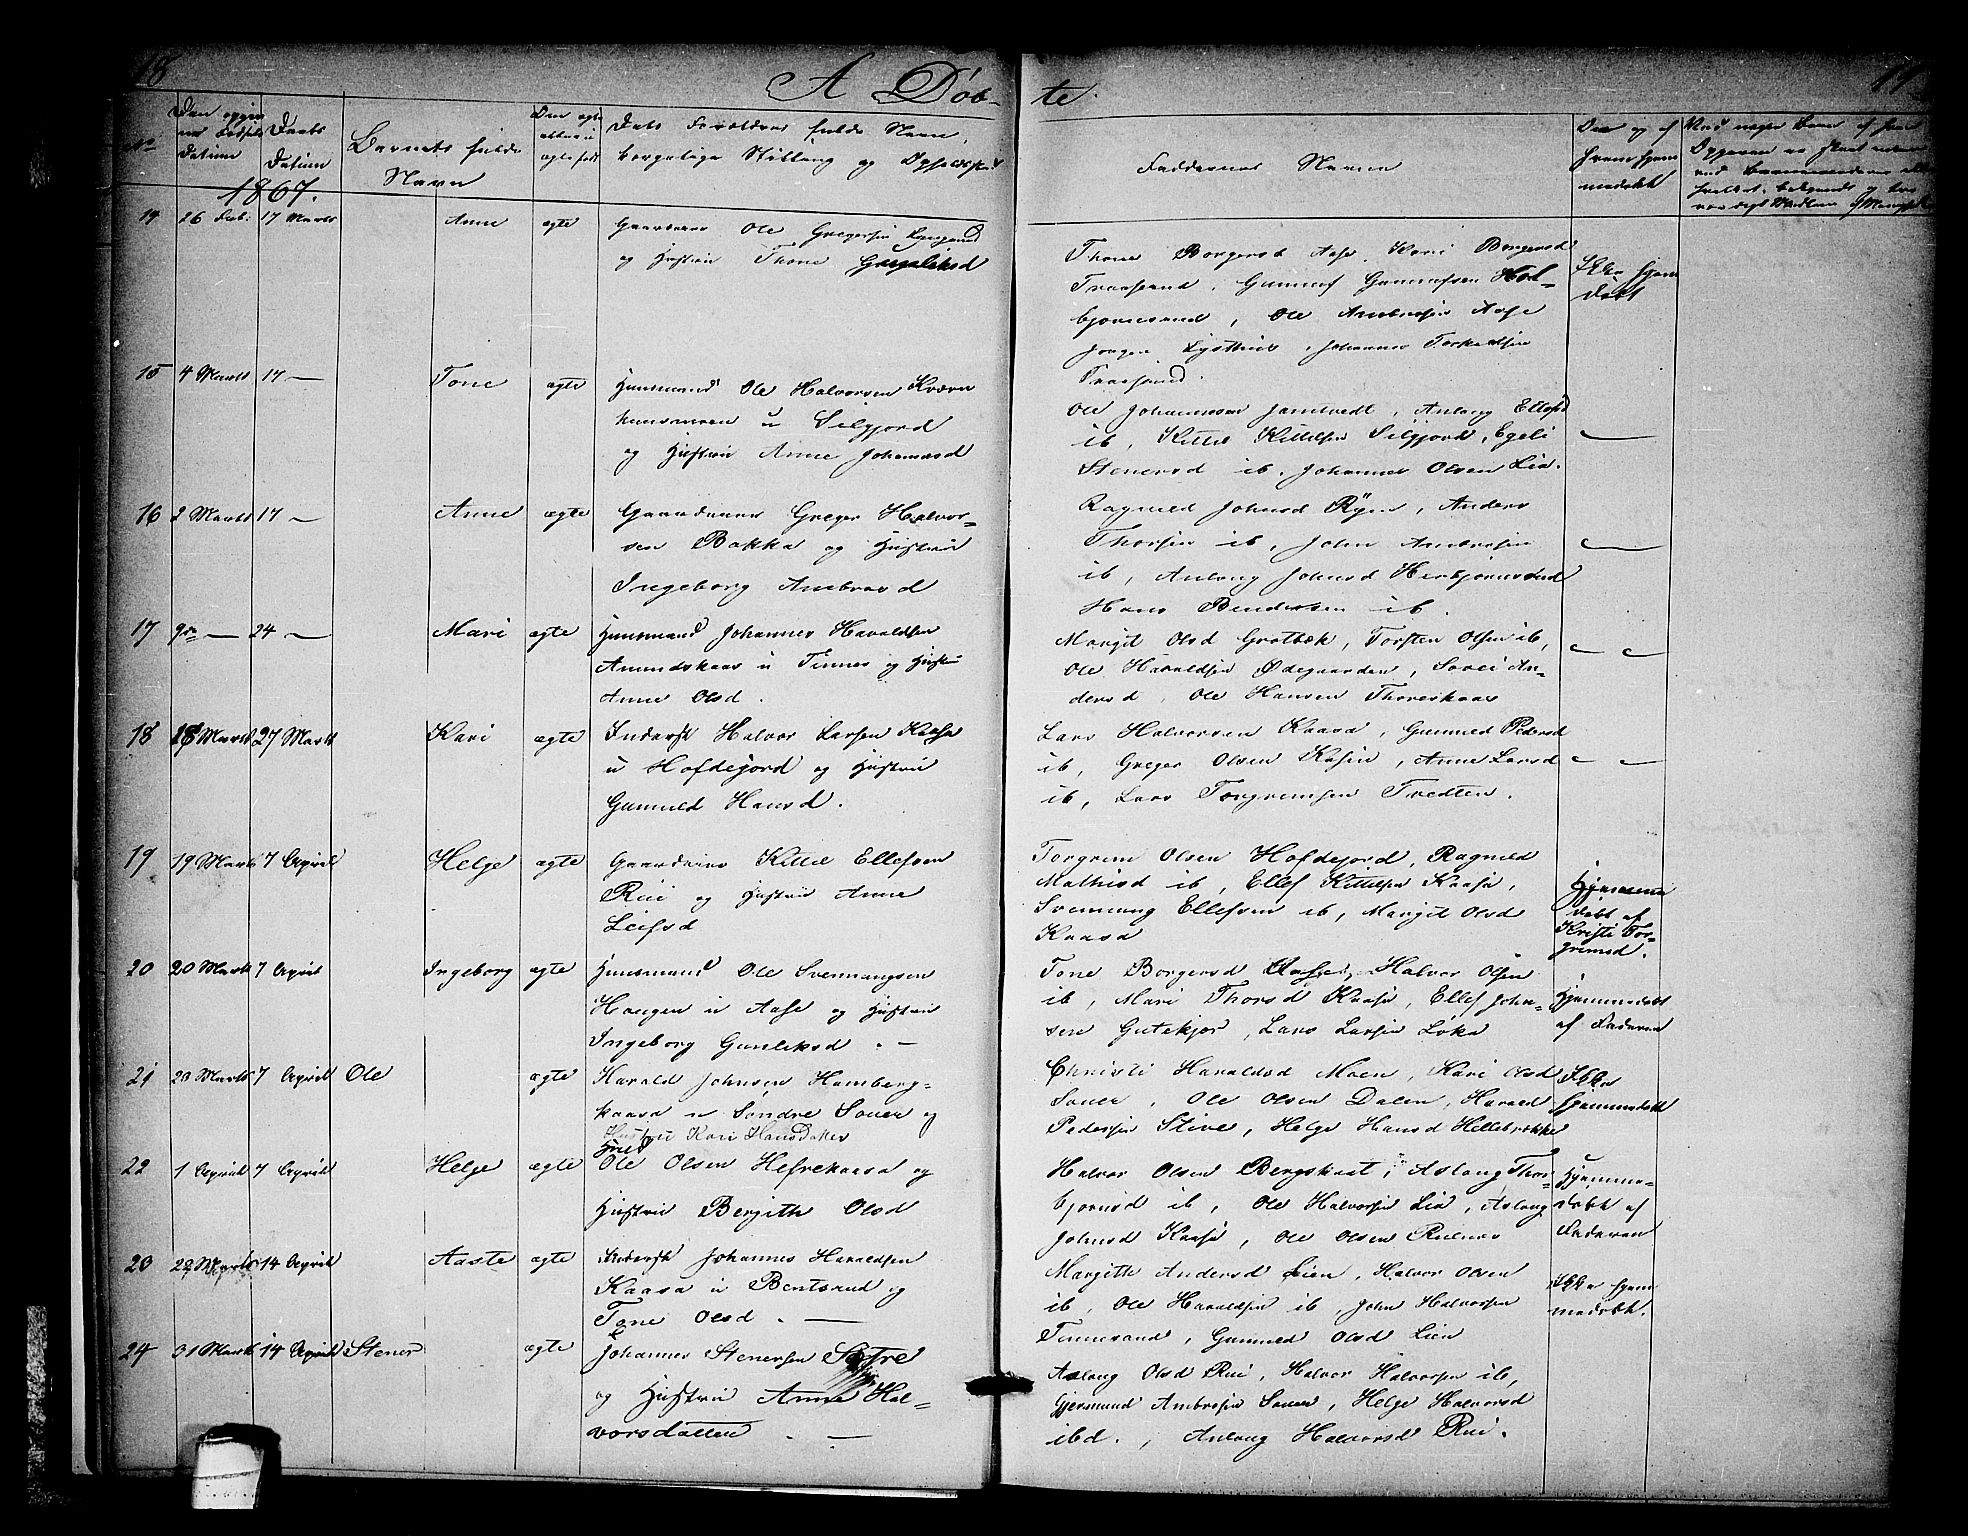 18
A Døb-
te.
19
No
Den opgiv
ne Fødsels
Datum
Daabs
Datum
Barnets fulde
Navn
Den ægte
eller u
ægte født
Dets Forældres fulde Navn,
borgerlige Stilling og Opholdssted
Faddernes Navne
Om og af
hvem hjem
medøbt
1867.
14 26 Feb: 17 Marts Anne ægte Gaardbr Ole Gregersen
og Hustru Thone Gunleiksd
Thone Borgersd Aase, Kari Borgersd
Traasand, Gunnuf Gunnufsen Hol-
bjørnsrud, Ole Ambrosen Aase
Jørgen Lysthus, Johannes Torkildsen
Traasand.
Ikke hjem
døbt
15 4 Marts 17 — Tone ægte Huusmand Ole Halvorsen Kværn
huusmoen u Silgjord
og Hustru Anne Johannesd
Ole Johannesen Jamtvedt, Aslaug Ellefsd
ib, Kittil Kittilsen Silgjord, Egeli
Stenersd ib. Johannes Olsen Lia.
—
16 2 Marts 17 — Anne ægte Gaardbruer Greger Halvor-
sen Bakka og Hustru
Ingeborg Ambrosd
Ragnild Johnsd Ryen, Anders
Thorsen ib, John Ambrosen
ib, Aslaug Johnsd Herbjørnsrud
Hans Bendersen ib.
—
17 9de — 24 — Mari ægte Huusmand Johannes Haraldsen
Amundskaas u Tinnes og Hustru
Anne Olsd.
Margit Olsd Grotbæk, Torsten Olsen ib,
Ole Haraldsen Ødegaarden, Sorei An-
dersd, Ole Hansen Thoreskaas
— —
18 18 Marts 27 Marts Kari ægte Inderst Halvor Larsen Kaasa
u Hofdejord og Hustru
Gunnild Hansd.
Lars Halvorsen Kaasa, Gunnild Pedersd
ib, Greger Olsen Kasin, Anne Larsd
ib, Lars Torgrimsen Tvedten.
— —
19 19 Marts 7 April Helge ægte Gaardbruer Kittil Ellefsen
Rui og Hustru Anne
Leifsd
Torgrim Olsen Hofdejord, Ragnild
Mathisd ib, Ellef Kittilsen Kaasa,
Svennung Ellefsen ib, Margit Olsd
Kaasa
Hjemme
døbt af
Kristi Tor-
grimsd.
20 20 Marts 7 April Ingeborg ægte Huusmand Ole Svennungsen
Haugen u Aase og Hustru
Ingeborg Gunleiksd . —
Tone Borgersd Aase, Halvor Olsen
ib, Mari Thorsd Kaasa, Ellef John-
sen Gutekjær, Lars Larsen Løka
Hjemmedøbt
af Faderen
21 23 Marts 7 April Ole ægte Harald Johnsen Hamberg-
kaasa u Søndre Sauer og
Hustru Kari Hansdatter
Christi Haraldsd Moen, Kari Olsd
Sauer, Ole Olsen Dalen, Harald
Pedersen Stive, Helge Hansd Hellebrække
Ikke
hjemmedøbt
22 1 April 7 April Helge ægte Ole Olsen Hefrekaasa og
Hustru Bergith Olsd
Halvor Olsen Bergskaas, Aslaug Thor-
bjørnsd ib, Ole Halvorsen Lia, Aslaug
Johnsd Kaasa, Ole Olsen Ruenes
Hjemme-
døbt af
Faderen
23 22 Marts 14 April Aaste ægte Inderst Johannes Haraldsen
Kaasa u Bentsrud og
Tone Olsd . —
Margith Andersd Lien, Halvor Olsen
ib, Ole Haraldsen ib, John Halvorsen
Tinnesand, Gunnild Olsd Lien
Ikke hjem
medøbt.
24 31 Marts 14 April Stener ægte Johannes Stenersen Sætre
og Hustru Anne Hal-
vorsdatten . —
Aslaug Olsd Rui, Halvor Halvorsen ib,
Gjermund Ambrosen Sauer, Helge Halvorsd
ibd., Aslaug Halvorsd Rui.